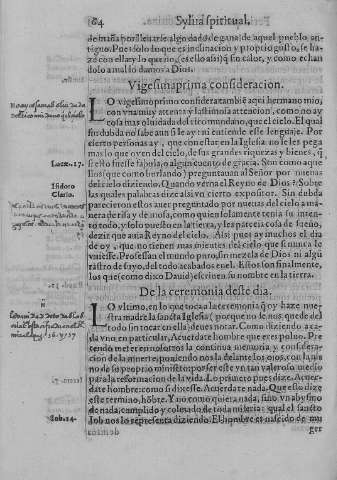 64 Sylva spiritual,
de maña por lleuar de algo dado s de gana: de aquel pueblo an-
tiguo. Pues solo lo que es inclinacion y proprio gusto, se ha-
ze con ella: y lo que no, (es essso assi) q̃ sin calor, y como echan
dolo a mal lo damos a Dios.
Vigesimaprima consideracion.
LO vigesimo primo considera tambiẽ aqui hermano mio,
con vna muy attenta y lastimosa attencion, como no ay
cosa mas oluidada del cielo mundano, que el cielo. El qual
sin dubda no sabe aun si le ay: ni entiende este lenguaje. Por
cierto personas ay, que con estar en la Iglesia no le les pega
mas lo que oyen del cielo, de sus grandes riquezas y bienes, q̃
si esto fuesse fabula, o algun cuento de gracia. Son como aque
llos (que como burlando) preguntauan al Señor por nueuas
del cielo diziendo. Quando verna el Reyno de Dios? Sobre
las quales palabras dize assi vn cierto expositor. Sin dubda
parecio a estos auer preguntado por nueuas del cielo a ma-
nera de risa y de mosa, como quien solamente tenia su inten-
to todo, y solo puesto en la tierra, y les parecia cosa de sueño,
dezir que auia Reyno del cielo. Assi pues ay muchos el dia
de oy, que no tienen mas mientes del cielo que si nunca le
vuiesse. Professan el mundo puro, sin mezcla de Dios ni algũ
rastro de suyo, del todo acabados en el. Estos son finalmente,
los que (como dize Dauid) escriuen su nombre en la tierra.
De la ceremonia deste dia.
LO vltimo, en lo que toca a la ceremonia q̃ oy haze nue-
stra madre la sancta Iglesia (porque no se nos quede del
todo sin tocar en ella) deues notar. Como diziendo a ca-
da vno en particular, Acuerdate hombre que eres poluo. Pre
tende meter en todos la continua memoria, y consideracion
de la muerte, poniendonosla delante los ojos, con la ma
no de su proprio ministro: por ser este vn tan valeroso medio
para la reformacion de la vida. Lo primero pues dize. Acuer-
date hombre: como si dixesse. Acuerdate nada. Que esso dize
este termino, hõbre. Y no como quiera nada, sino vn abysmo
de nada, cumplido y colmado de toda miseria: qual el sancto
Iob nos lo representa diziendo. El hombre es nascido de mu
ger
Luc. 17.
Isidoro
Clario.
Iob. 14.